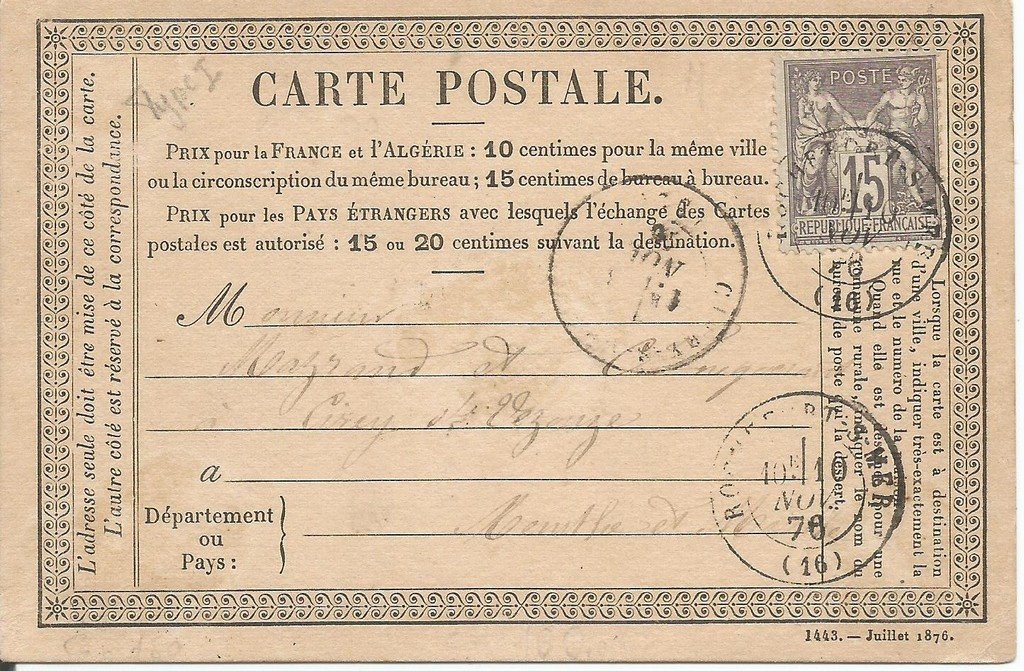 CARTE POSTALE.
PRIX pour la FRANCE et l'ALGÉRIE : 10 centimes pour la même ville
ou la circonscription du même bureau ; 15 centimes de bureau à bureau.
PRIX pour les PAYS ÉTRANGERS avec lesquels l'échange des Cartes
postales est autorisé : 15 ou 20 centimes suivant la destination.
Monsieur
Mazrand et
à Cirey sur Vezouze
a
Département
ou
Pays :
Meurthe et Moselle
L'adresse seule doit être mise de ce côté de la carte.
L'autre côté est réservé à la correspondance.
Lorsque la carte est à destination
d'une ville, indiquer très-exactement la
rue et le numéro de la
Quand elle est destinée pour une
commune rurale, indiquer le nom du
bureau de poste qui la dessert.
Type I
POSTE
15
REPUBLIQUE FRANÇAISE
NOV
(16)
CIREY-S
NOV
ROCHEFORT-S-MER
10E 10
NOV.
76
(16)
1443. — Juillet 1876.